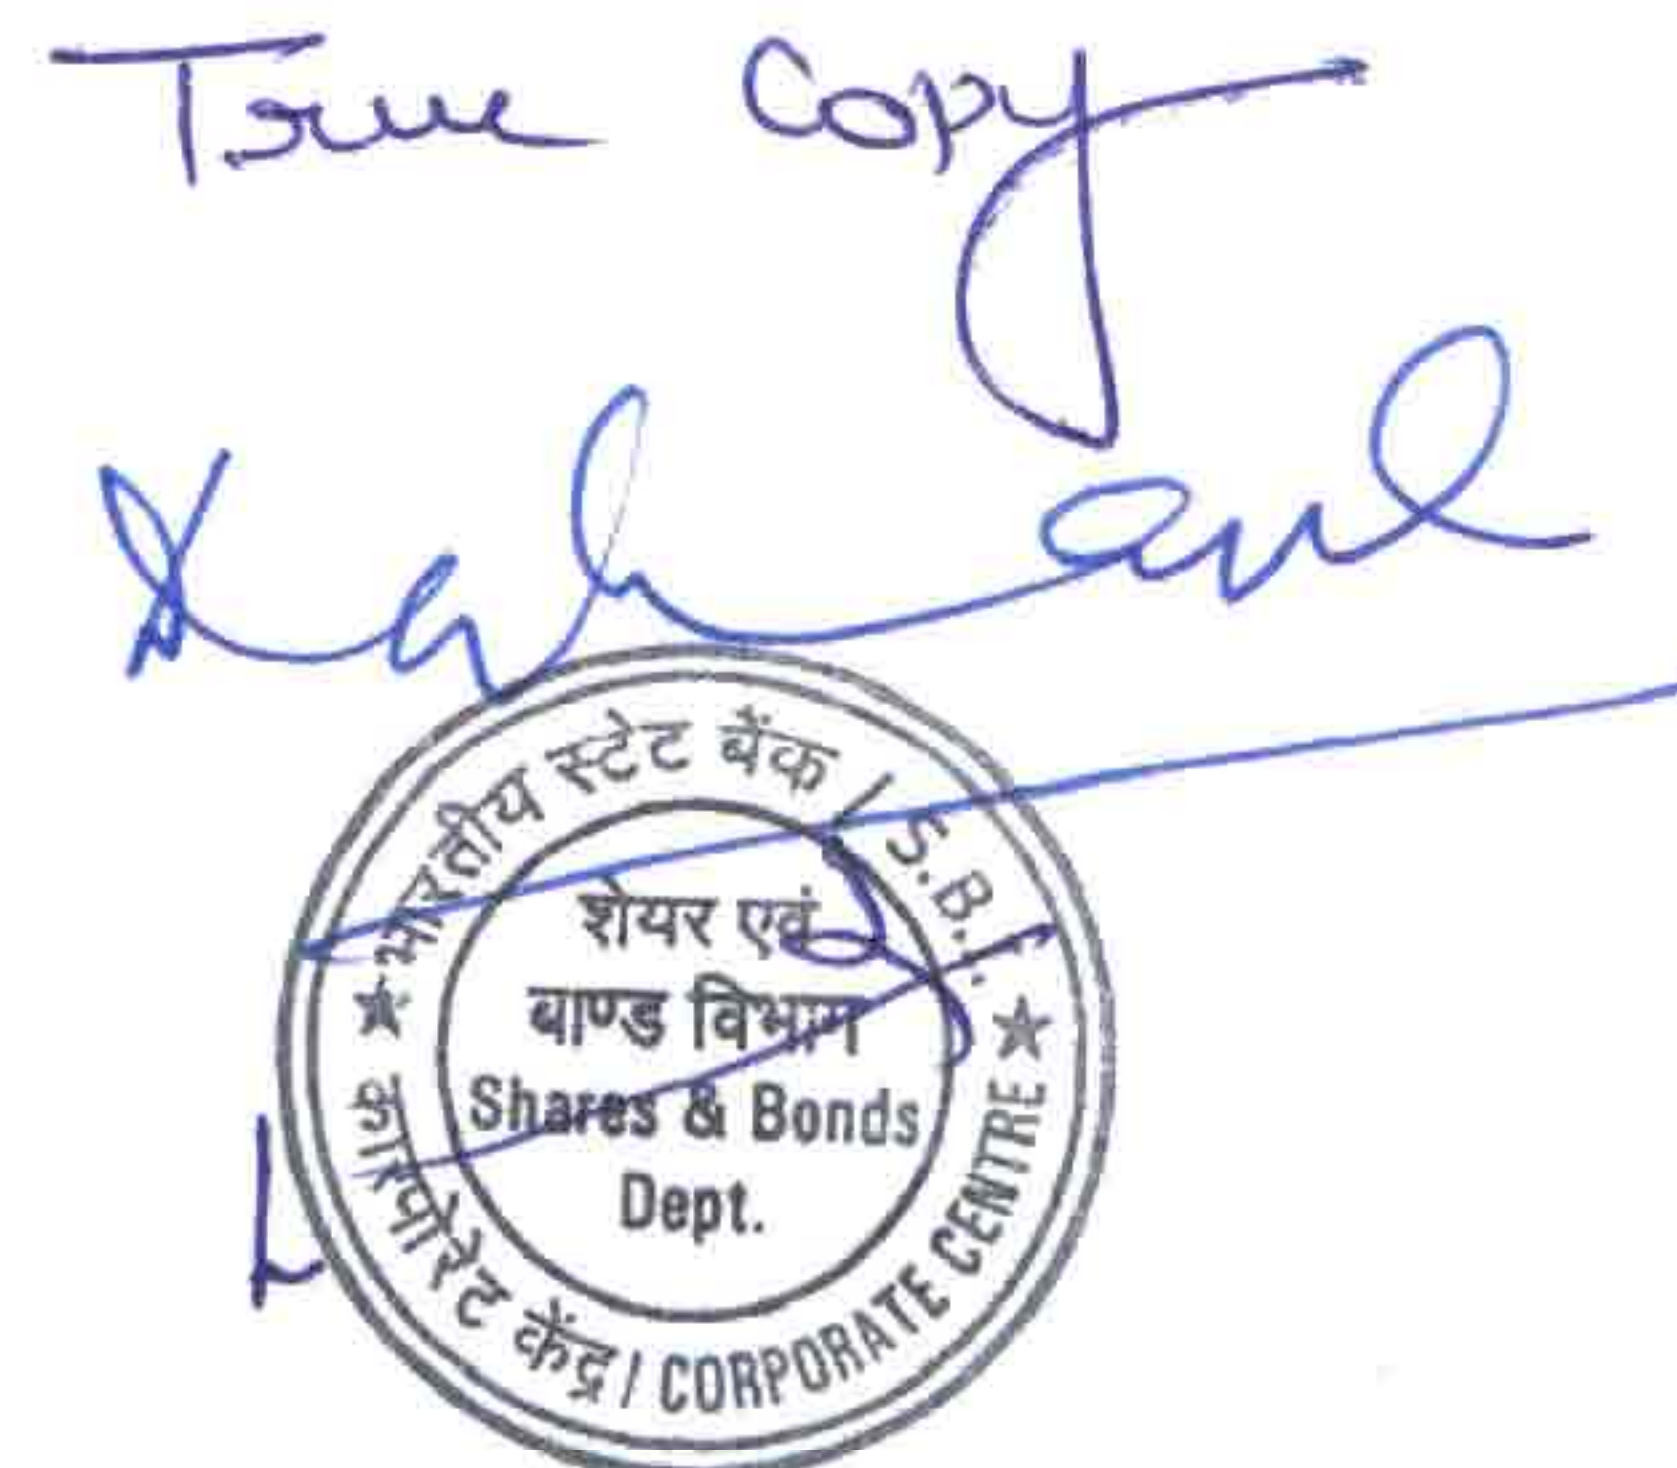 True Copy
भारतीय स्टेट बैंक / S.B.I.
शेयर एवं
बाण्ड विभाग
Shares & Bonds
Dept.
कारपोरेट केंद्र / CORPORATE CENTRE